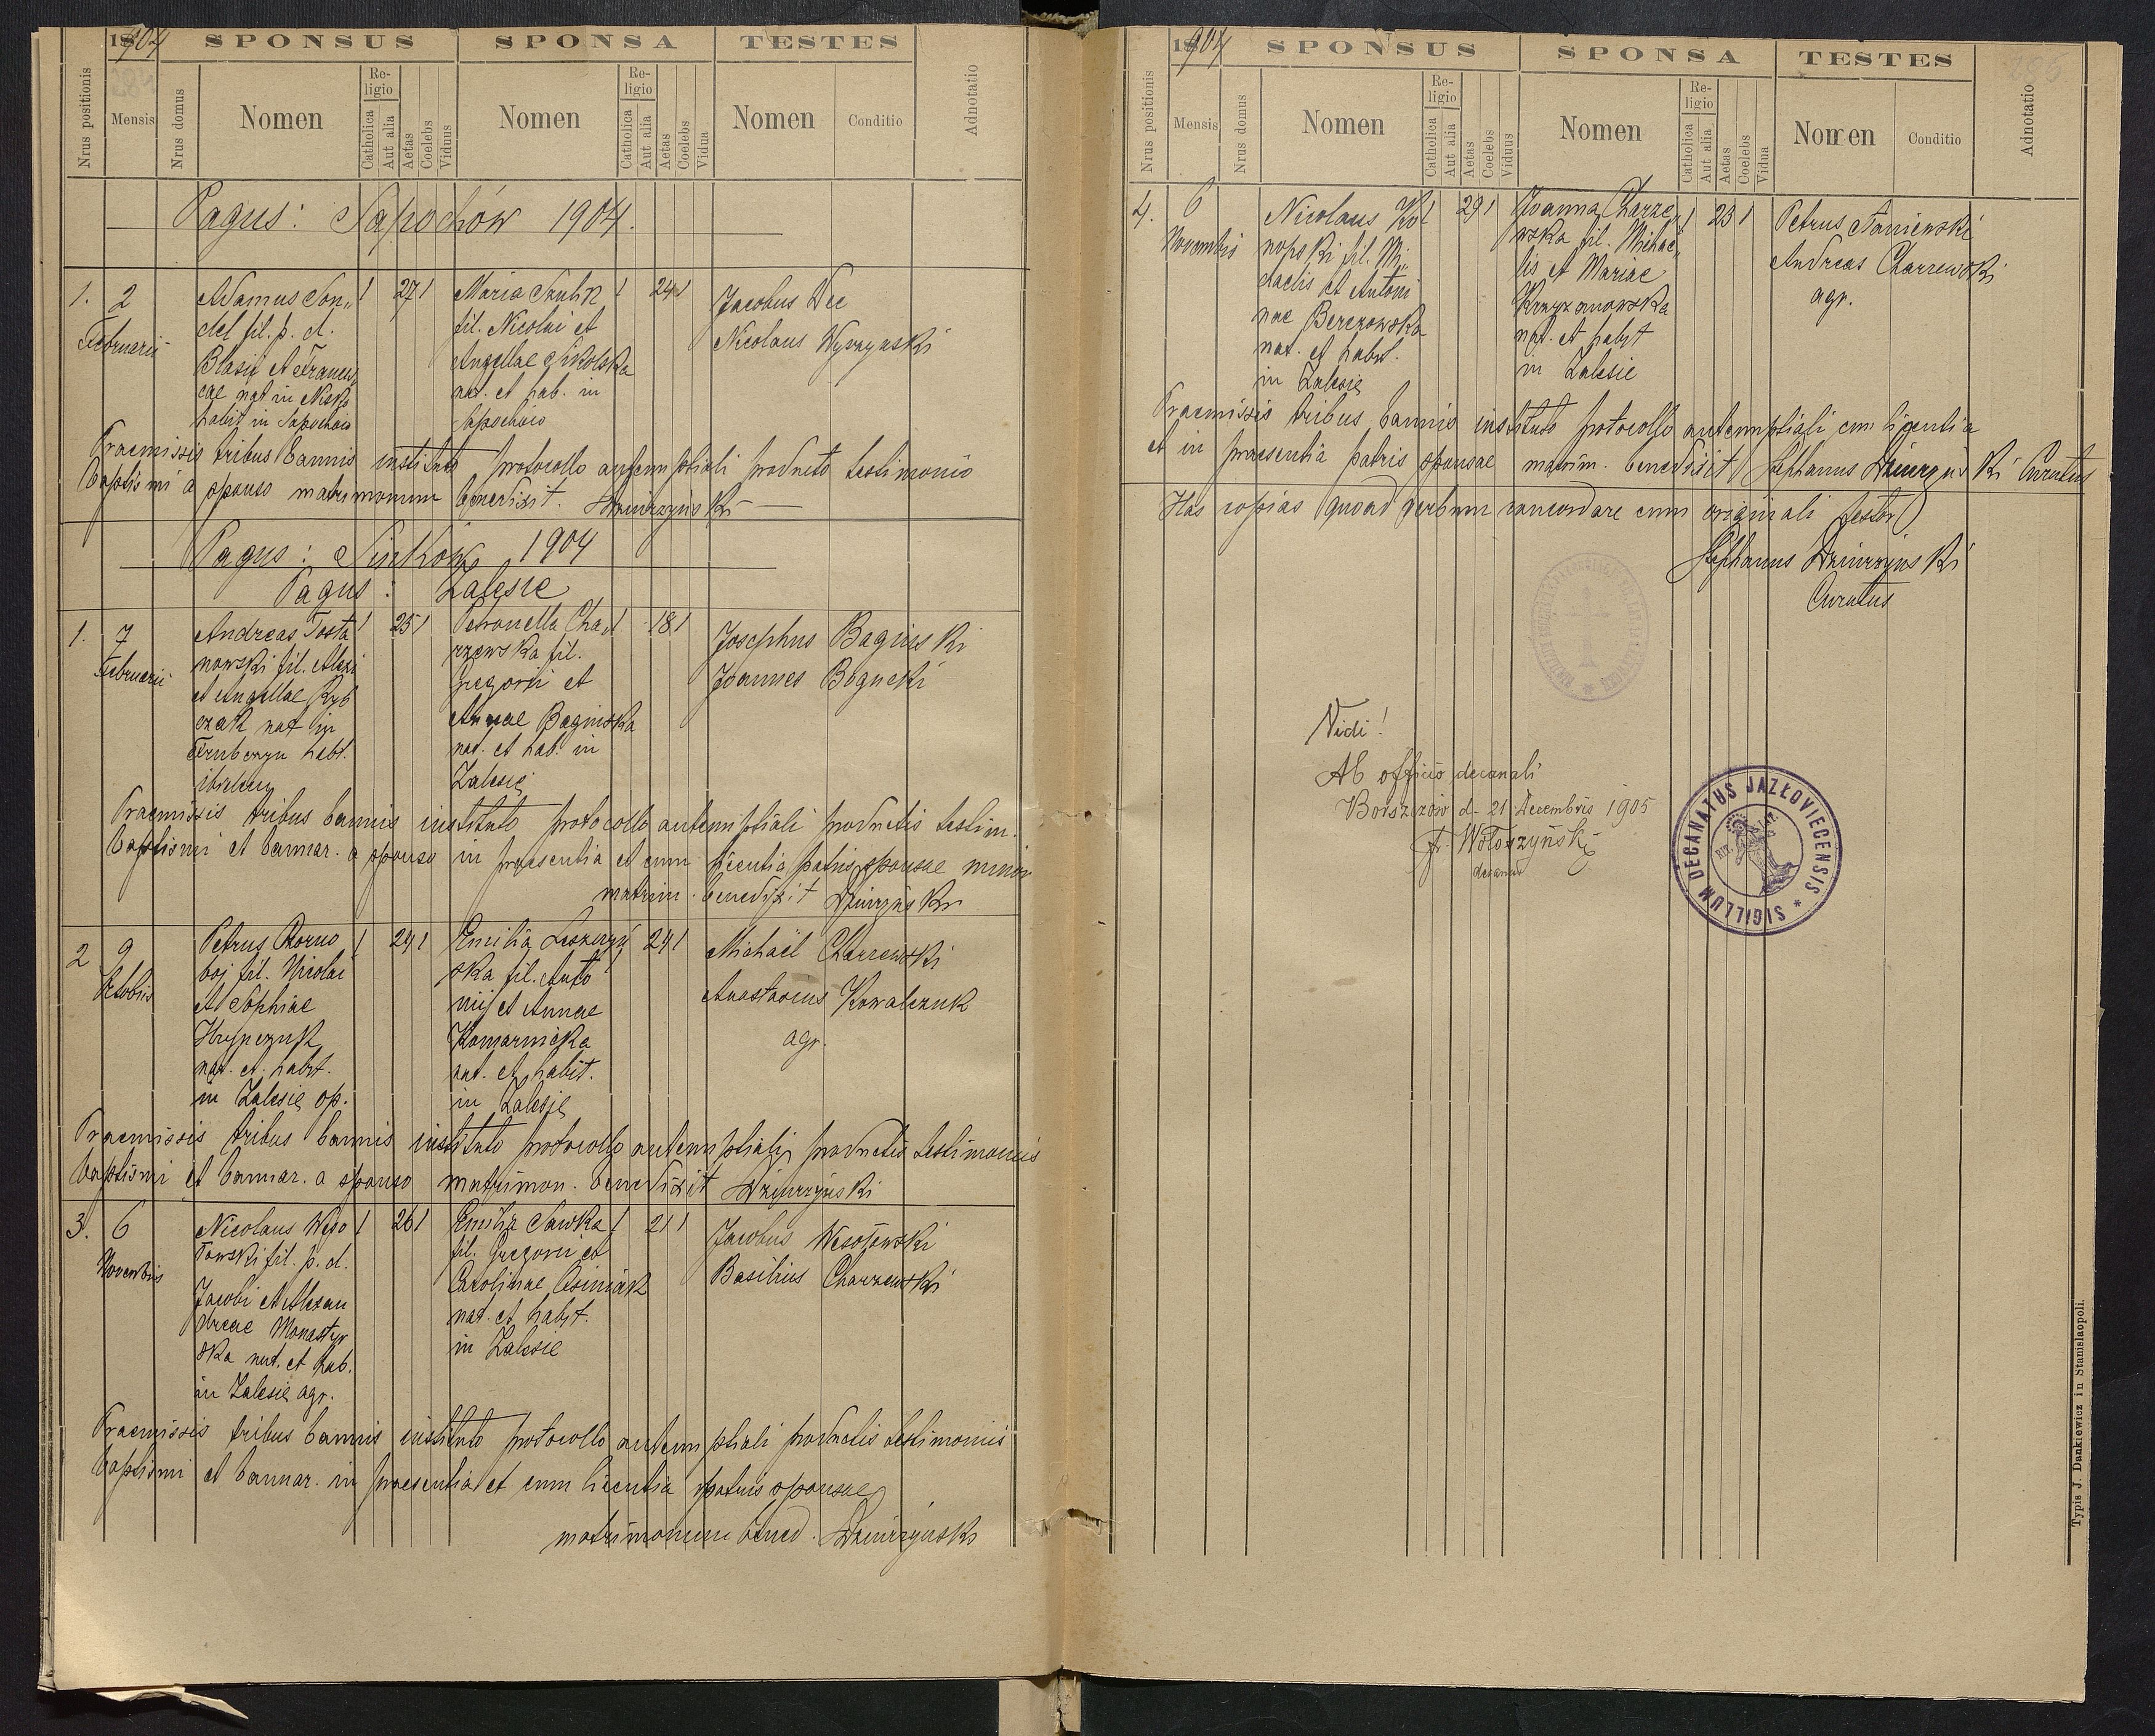 1904 SPONSUS SPONSA TESTES
Nrus positionis Mensis Nrus domus Nomen Religio Catholica Aut alia Aetas Coelebs Viduus Nomen Religio Catholica Aut alia Aetas Coelebs Vidua Nomen Conditio Adnotatio
Pagus: Sapochów 1904.
1. 2 Februarii
Adamus Son„
del fil. p. d.
Blasii et Francis
cae nat in Nisko
habit in Sapochów
1 27 1
Maria Szulik
fil. Nicolai et
Angellae Sikolska
nat. et hab. in
Sapochów
1 24 1
Jacobus Wec
Nicolaus Wyrzynski
Praemissis tribus bannis instituto protocollo antenuptiali producto testimonio
baptismi a sponso matrimonium benedixit. Dziurzyński
Pagus: Sinków 1904
Pagus: Zalesie
1. 7 Februarii
Andreas Tosta
nowski fil. Alexi
et Angellae Ryb
czak nat in
habt.
ibidem
1 25 1
Petronella Cha
rzewska fil.
Gregorii et
Annae Baginska
nat. et hab. in
Zalesie
1 18 1
Josephus Baginski
Joannes Bogucki
Praemissis tribus bannis instituto protocollo antenuptiali productis testim.
baptismi et bannar. a sponso in praesentia et cum licentia patris sponsae minor
matrim. benedixit Dziurzyński
2 9 Octobris
Petrus
boj fil. Nicolai
et Sophiae
Hrypczuk
nat. et habit.
in Zalesie op.
1 24 1
Emilia Leszczyń
ska fil. Anto
nii et Annae
Komarnicka
nat. et habit.
in Zalesie
1 24 1
Michaël Charzewski
Anastasius Kowalczuk
agr.
Praemissis tribus bannis instituto protocollo antenuptiali productis testimoniis
baptismi et bannar. a sponso matrimon. benedixit Dziurzyński
3. 6 Novembris
Nicolaus Weso
łowski fil. p. d.
Jacobi et Alexan
drae Monastyr
ska nat. et hab.
in Zalesie agr.
1 26 1
Emilia Sawka
fil. Gregorii et
Carolinae Osiniak
nat. et habit.
in Zalesie
1 21 1
Jacobus Wesołowski
Basilius Charzewski
Praemissis tribus bannis instituto protocollo antenuptiali productis testimoniis
baptismi et bannar. in praesentia et cum licentia patris sponsae
matrimonium bened. Dziurzyński
1904 SPONSUS SPONSA TESTES
Nrus positionis Mensis Nrus domus Nomen Religio Catholica Aut alia Aetas Coelebs Viduus Nomen Religio Catholica Aut alia Aetas Coelebs Vidua Nomen Conditio Adnotatio
4. 6 Novembris
Nicolaus Ko
nopski fil. Mi„
chaelis et Antoni
nae Berezowska
nat. et habit.
in Zalesie
1 29 1
Joanna Charze„
wska fil. Michae„
lis et Mariae
Krzyzanowska
nat. et habit
in Zalesie
1 23 1
Petrus Staniewski
Andreas Charzewski
agr.
Praemissis tribus bannis instituto protocollo antenuptiali cum licentia
et in praesentia patris sponsae matrim. benedixit Stephanus Dziurzyński Curatus
Has copias quoad verbum concordare cum originali testor
Stephanus Dziurzyński
Curatus
Vidi!
Ab officio decanali
Borszczów d. 21 Decembris 1905
F. Wołoszyński
decanus
SIGILLUM DECANATUS JAZŁOVIECENSIS *
Typis J. Dankiewicz in Stanislaopoli.